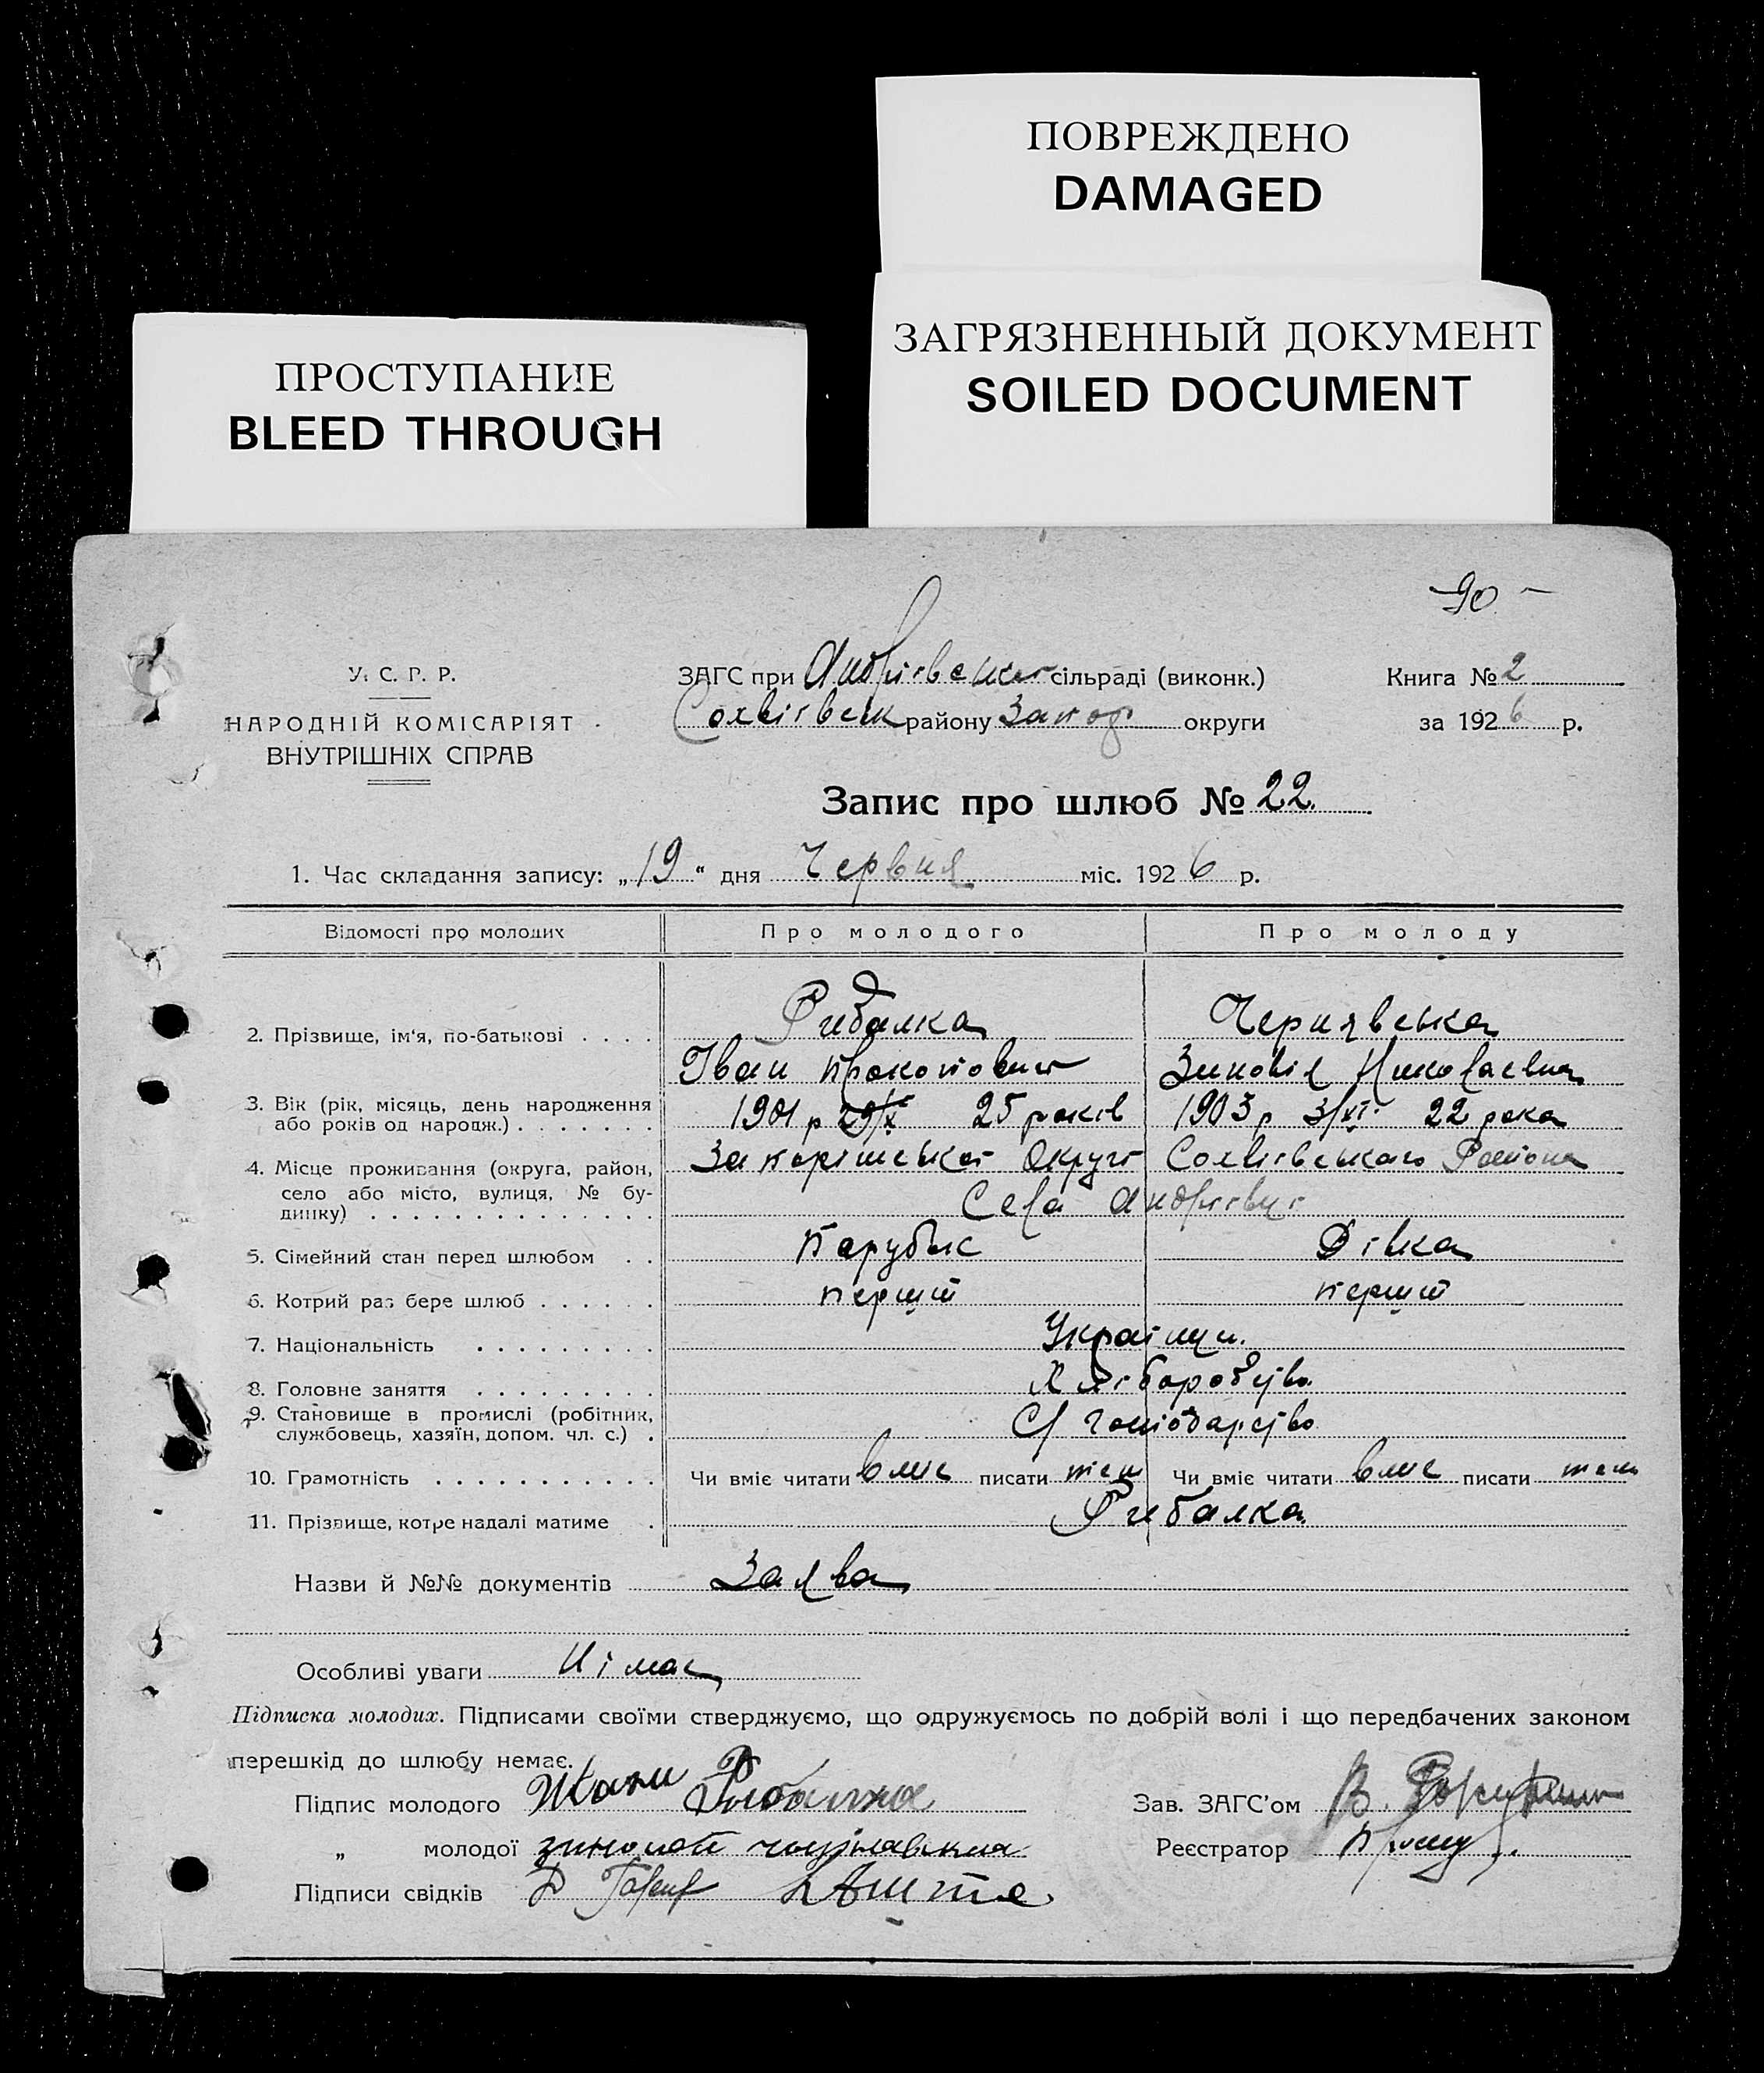 ПОВРЕЖДЕНО
DAMAGED
ЗАГРЯЗНЕННЫЙ ДОКУМЕНТ
SOILED DOCUMENT
ПРОСТУПАНИЕ
BLEED THROUGH
90
У. С. Р. Р.
НАРОДНІЙ КОМІСАРІЯТ
ВНУТРІШНІХ СПРАВ
ЗАГС при Андріївській сільраді (виконк.)
Софіївськ району Запор округи
Книга № 2
за 1926 р.
Запис про шлюб № 22.
1. Час складання запису: „19“ дня Червня міс. 1926 р.
Відомості про молодих Про молодого Про молоду
2. Прізвище, ім‘я, по-батькові Рибалка Чернявська
Іван Прокопович Зиновія Николаевна
3. Вік (рік, місяць, день народження або років од народж.) 1901 р 29/X 25 років 1903 р 3/XI. 22 рока
4. Місце проживання (округа, район, село або місто, вулиця, № будинку) Запоріжської Округи Софіївського Району
Села Андріївці
5. Сімейний стан перед шлюбом Парубок Дівка
6. Котрий раз бере шлюб перший перший
7. Національність Українци.
8. Головне заняття Хліборобство
9. Становище в промислі (робітник, службовець, хазяїн, допом. чл. с.) С/ господарство
10. Грамотність Чи вміє читати вміє писати теж Чи вміє читати вміє писати теж
11. Прізвище, котре надалі матиме Рибалка
Назви й №№ документів Заява
Особливі уваги Немає
Підписка молодих. Підписами своїми стверджуємо, що одружуємось по добрій волі і що передбачених законом
перешкід до шлюбу немає.
Підпис молодого Рибалка
Зав. ЗАГС’ом В.
„ молодої
Реєстратор
Підписи свідків